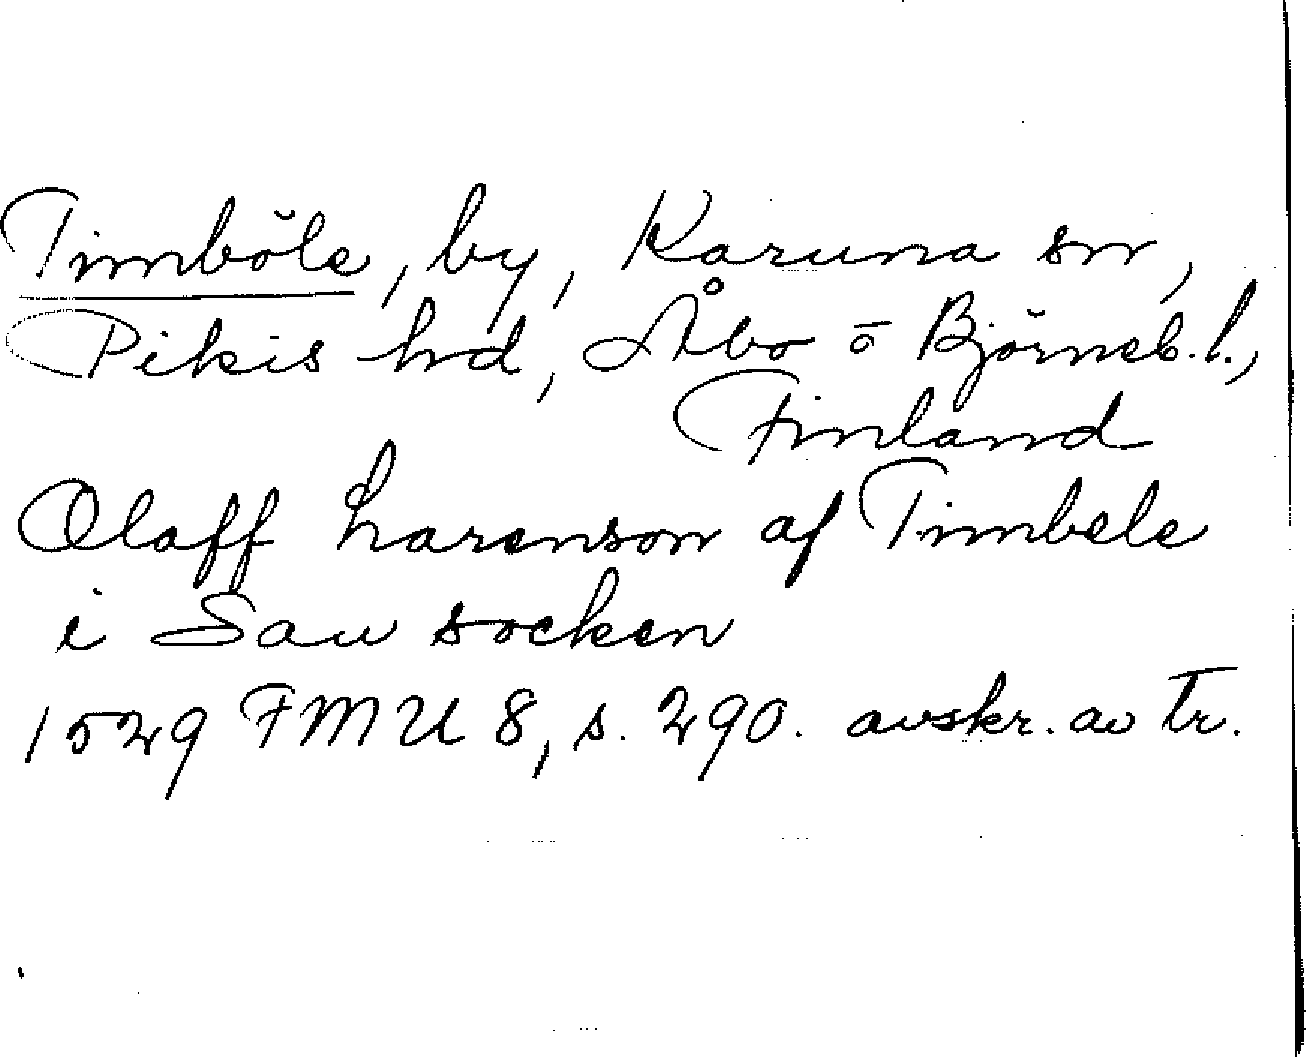 Timböle, by, Karuna sn,
Pikis hd, Åbo o Björneb. l.,
Finland
Olaff Larenson af Timbele
i Sau socken
1529 FMU 8, s. 290. avskr. av tr.